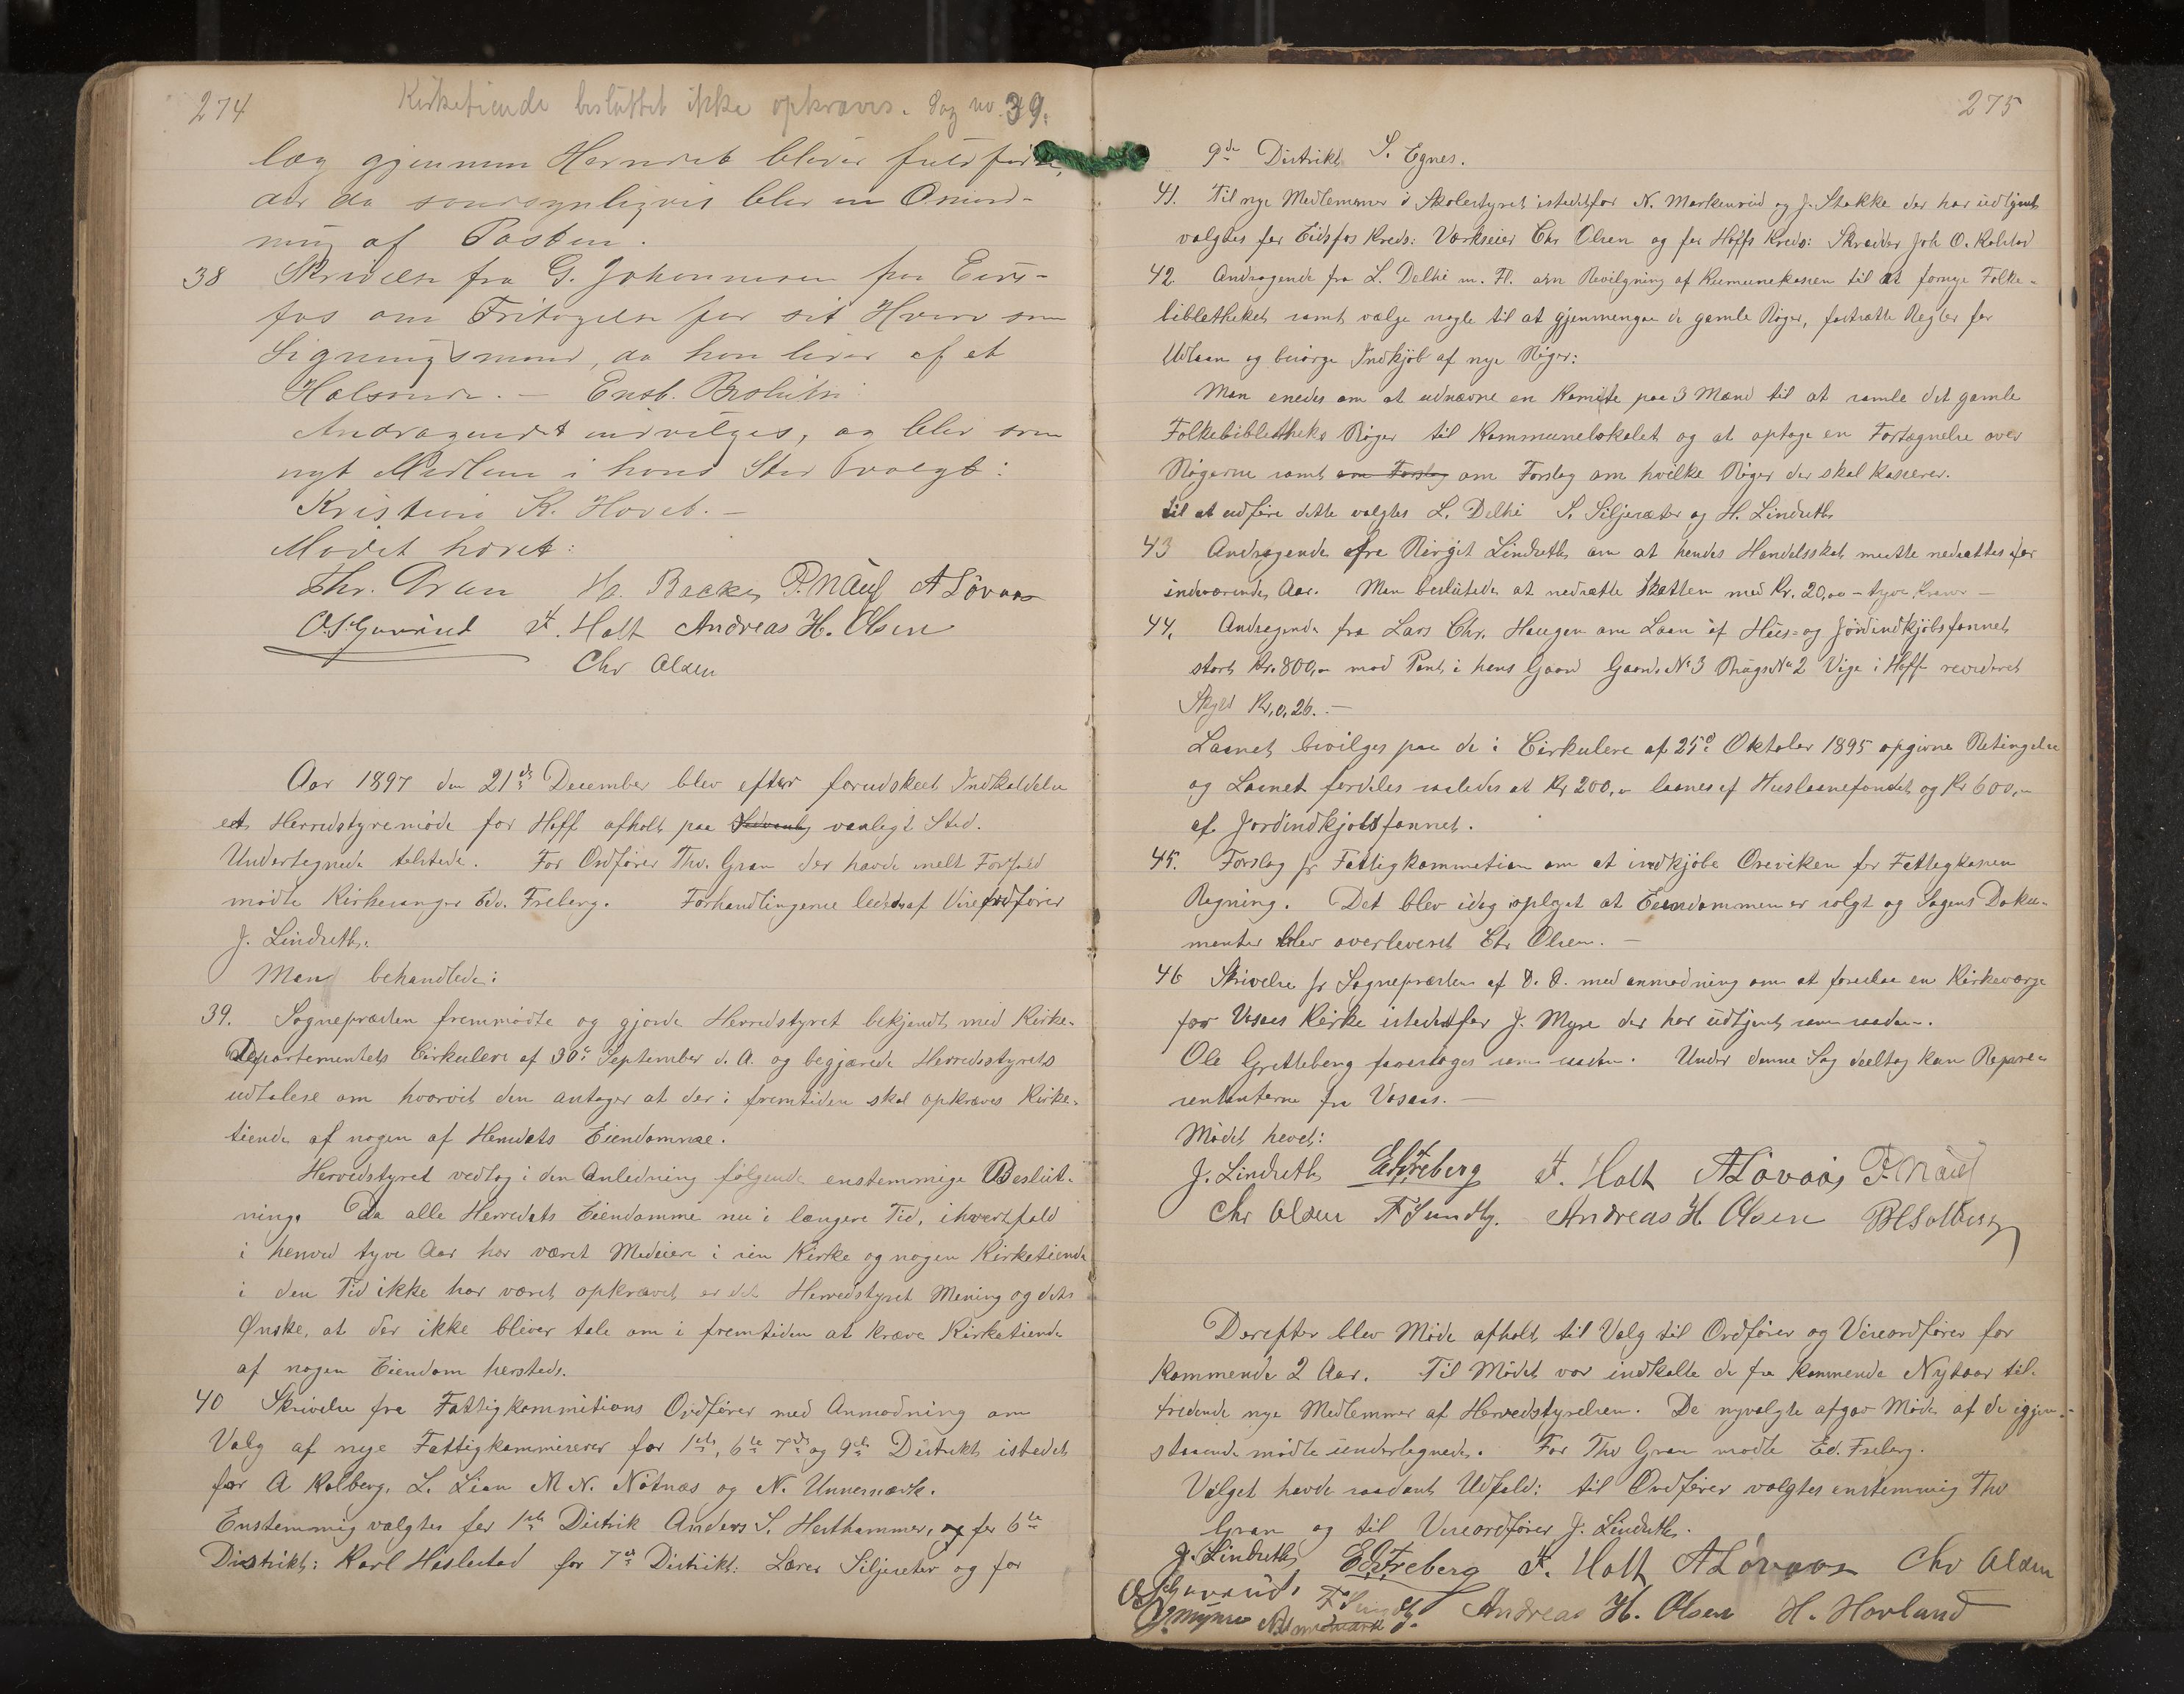 274
Kirketiende besluttet ikke opkræves. Sag no. 39.
læg gjennem Herredet bliver fuldført,
der da sandsynligvis blev en Omord-
ning af Posten.
38 Skrivelse fra G. Johannesen paa Eids-
fos om Fritagelse for sit Hverv som
Ligningsmand, da han lider af et
Halsonde. — Enst. Beslutn:
Andragendet indvilges, og blev som
nyt Medlem i hans Sted valgt:
Kristian K. Hovet. —
Mødet hævet:
Thv. Gran H. Backe P. Næss A Løvaas
O. S. Gunnerud F. Holt Andreas H. Olsen
Chr Olsen
Aar 1897 den 21de December blev efter forudskeet Indkaldelse
et Herredstyremøde for Hoff afholt paa Sedvanlig vanligt Sted.
Undertegnede tilstede. For Ordfører Thv. Gran der havde melt Forfald
mødte Kirkesanger Edv. Freberg. Forhandlingerne lededes af Viceordfører
J. Lindseth.
Man behandlede:
39. Sognepræsten fremmødte og gjorde Herredstyret bekjendt med Kirke-
departementets Cirkulere af 30te September d. A. og begjærede Herredsstyrets
udtalese om hvorvit den antager at der i fremtiden skal opkræves Kirke-
tiende af nogen af Herredets Eiendomme.
Herredstyret vedtog i den Anledning følgende enstemmige Beslut-
ning. Da alle Herredets Eiendomme nu i længere Tid, ihvertfald
i henved tyve Aar har været Medeiere i sin Kirke og nogen Kirketiende
i den Tid ikke har været opkrævet er det Herredstyret Mening og dets
Ønske, at der ikke bliver tale om i fremtiden at kræve Kirketiende
af nogen Eiendom hersteds.
40 Skrivelse fra Fattigkommitions Ordfører med Anmodning om
Valg af nye Fattigkommiserer for 1ste, 6te 7de og 9de Distrikt istedet
for A Kolberg, L. Lian M N. Nøtnæs og N. Unnersmark.
Enstemmig valgtes for 1ste Distrik Anders S. Hesthammer, og for 6te
Distrikt: Karl Haslestad for 7de Distrikt: Lærer Siljesæter og for
275
9de Distrikt S. Egnes.
41. Til nye Medlemmer i Skolestyret istedetfor N. Markerud og J. Stokke der har udtjent
valgtes for Eidsfos Kreds: Værkseier Chr Olsen og for Hoffs Kreds: Skrædder Joh O. Kolstad
42. Andragende fra L. Delhi m. Fl. om Bevilgning af Kommunekassen til at fornye Folke-
bibletheket samt vælge nogle til at gjennemgaa de gamle Bøger, fastsætte Regler for
Udlaan og besørge Indkjøb af nye Bøger:
Man enedes om at udnævne en Komite paa 3 Mænd til at samle det gamle
Folkebibletheks Bøger til Kommunelokalet og at optage en Fortegnelse over
Bøgerne samt om Forslag om Forslag om hvilke Bøger der skal kasseres.
til at udføre dette valgtes L. Delhi S. Siljesæter og H. Lindseth
43 Andragende fra Birgit Lindseth om at hendes Handelsskat maatte nedsættes for
indeværende Aar. Man besluttede at nedsætte Skatten med Kr. 20,00 - tyve Kroner —
44. Andragende fra Lars Chr. Haugen om Laan af Hus- og Jordindkjøbsfonnet
stort Kr. 800,- mod Pant i hans Gaard Gaards No 3 Brugs No 2 Vige i Hoff revideret
Skyld Kr. 0,26. —
Laanet bevilges paa de i Cirkulere af 25de Oktober 1895 opgivne Betingelser
og Laanet fordeles saaledes at Kr 200,- laanes af Huslaanefondet og Kr 600,-
af Jordindkjøbsfonnet.
45. Forslag fr Fattigkommetion om at indkjøbe Oreviken for Fattigkassen
Regning. Det blev idag oplyst at Eiendommen er solgt og Sagens Doku-
menter blev overleveret Chr Olsen. —
46 Skrivelse fr Sognepræsten af D. D. med anmodning om at foreslaa en Kirkeværge
for Vasaas Kirke istedetfor J. Myre der har udtjent som saadan.
Ole Gretteberg foreslages som saadan. Under denne Sag deeltog kun Repræ-
sentanterne fra Vasaas. —
Mødet hævet:
J. Lindseth Ed. Freberg F. Holt A Løvaas P. Næss
Chr Olsen F Sundby. Andreas H Olsen
Derefter blev Møde afholt til Valg til Ordfører og Viceordfører for
kommende 2 Aar. Til Mødet var indkalte de fra kommende Nytaar til-
trædende nye Medlemmer af Herredstyrelsen. De nyvalgte afgav Møde af de igjen-
staaende mødte undertegnede. For Thv Gran mødte Ed. Freberg.
Valget havde saadant Udfald: til Ordfører valgtes enstemmig Thv
Gran og til Viceordfører J. Lindseth.
J. Lindseth Ed. Freberg F. Holt A Løvaas Chr Olsen
O S Gunnerud. F Sundby. Andreas H. Olsen H. Hovland
J. Myhre